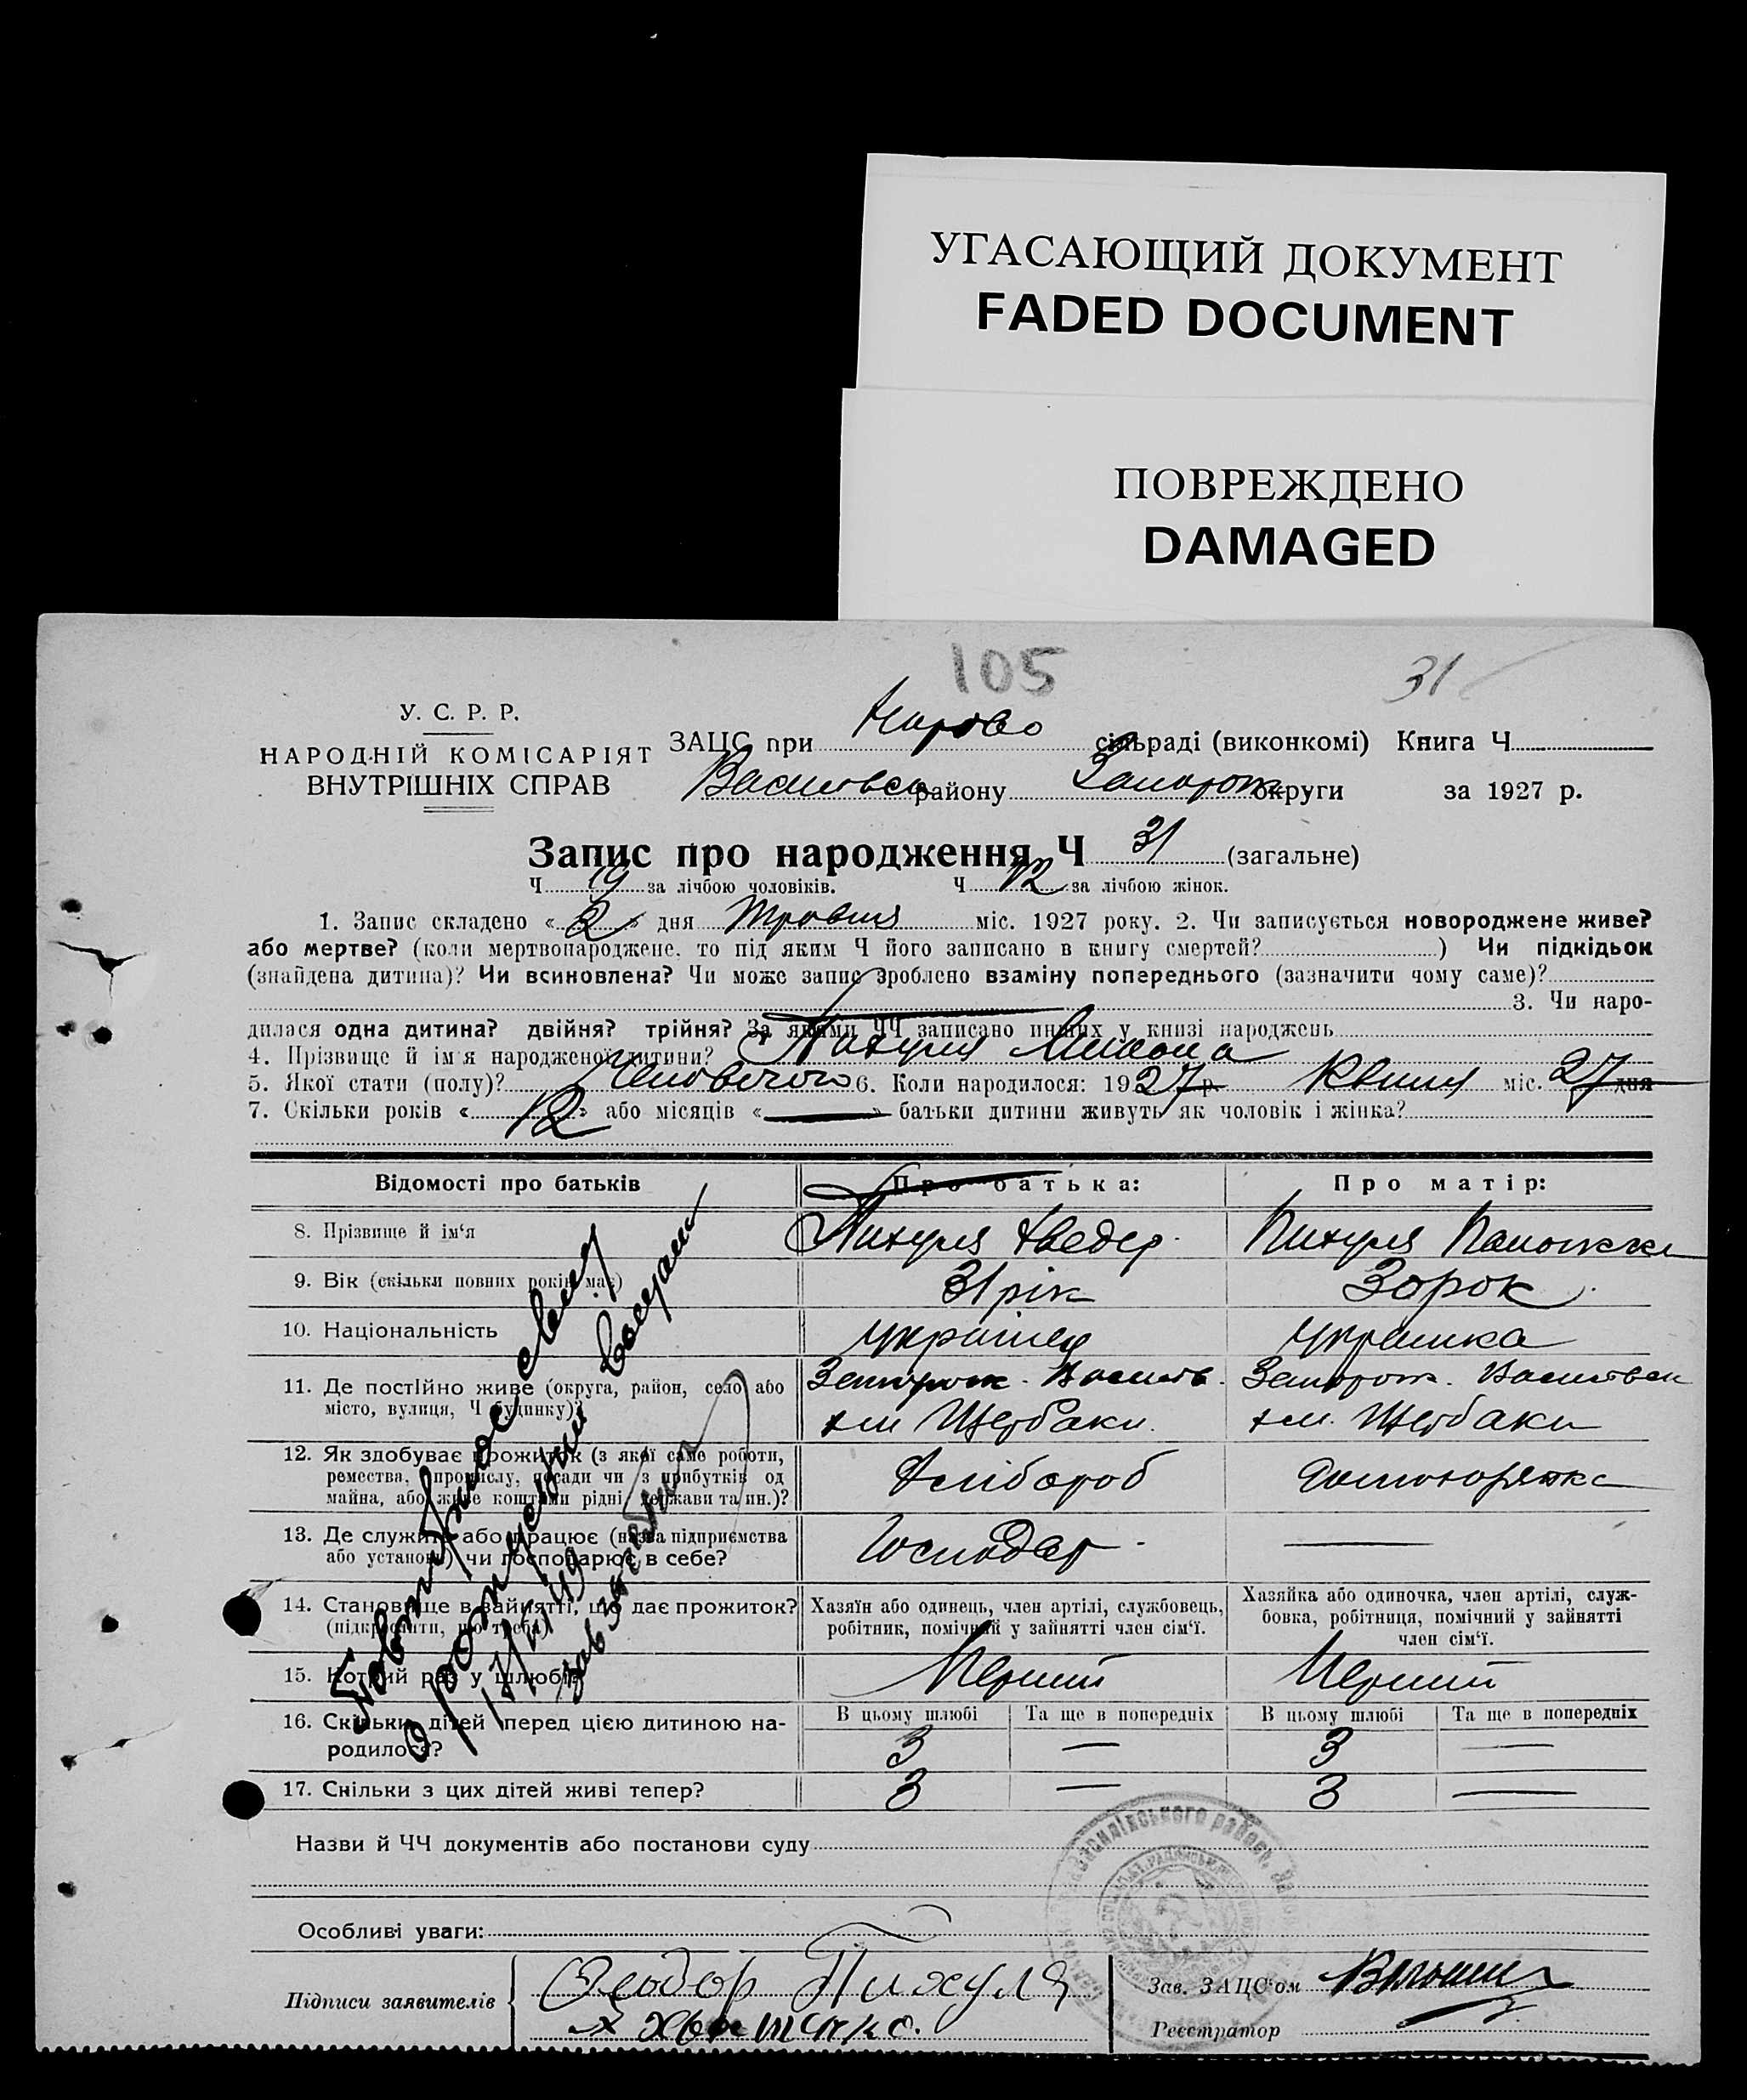 УГАСАЮЩИЙ ДОКУМЕНТ
FADED DOCUMENT
ПОВРЕЖДЕНО
DAMAGED
105
31
У. С. Р. Р.
НАРОДНІЙ КОМІСАРІЯТ
ВНУТРІШНІХ СПРАВ
ЗАЦС при сільраді (виконкомі) Книга Ч
району Запорож округи за 1927 р.
Запис про народження Ч 31 (загальне)
Ч 19 за лічбою чоловіків. Ч 12 за лічбою жінок.
1. Запис складено « 2 » дня Травня міс. 1927 року. 2. Чи записується новороджене живе?
або мертве? (коли мертвонароджене, то під яким Ч його записано в книгу смертей? ) Чи підкідьок
(знайдена дитина)? Чи всиновлена? Чи може запис зроблено взаміну попереднього (зазначити чому саме)?
3. Чи наро-
дилася одна дитина? двійня? трійня? За якими ЧЧ записано инших у книзі народжень
4. Прізвище й ім'я народженої дитини? Пихуля Микола
5. Якої стати (полу)? 6. Коли народилося: 1927 р. Квітня міс. 27 дня
7. Скільки років « 12 » або місяців « — » батьки дитини живуть як чоловік і жінка?
Відомості про батьків Про батька: Про матір:
8. Прізвище й ім'я Пихуля Хведер Пихуля
9. Вік (скільки повних років має) 31 рік 30 рок
10. Національність українец українка
11. Де постійно живе (округа, район, село або
місто, вулиця, Ч будинку)? Запорож. Василів. Запорож.
Щербаки Щербаки
12. Як здобуває прожиток (з якої саме роботи,
ремества, промислу, посади чи з прибутків од
майна, або живе коштами рідні, держави та ин.)? Хлібороб Домогорядка
13. Де служить або працює (назва підприємства
або установи) чи господарює в себе? Господар —
14. Становище в зайнятті, що дає прожиток?
(підкреслити, що треба)
Хазяїн або одинець, член артілі, службовець,
робітник, помічний у зайнятті член сім'ї.
Хазяйка або одиночка, член артілі, служ-
бовка, робітниця, помічний у зайнятті
член сім'ї.
15. Котрий раз у шлюбі? Перший Перший
16. Скільки дітей перед цією дитиною на-
родилося?
В цьому шлюбі Та ще в попередніх В цьому шлюбі Та ще в попередніх
3 — 3 —
17. Скільки з цих дітей живі тепер? 3 — 3 —
Назви й ЧЧ документів або постанови суду
Особливі уваги:
Підписи заявителів Феодор Пихуля
Зав. ЗАЦС'ом
Реєстратор